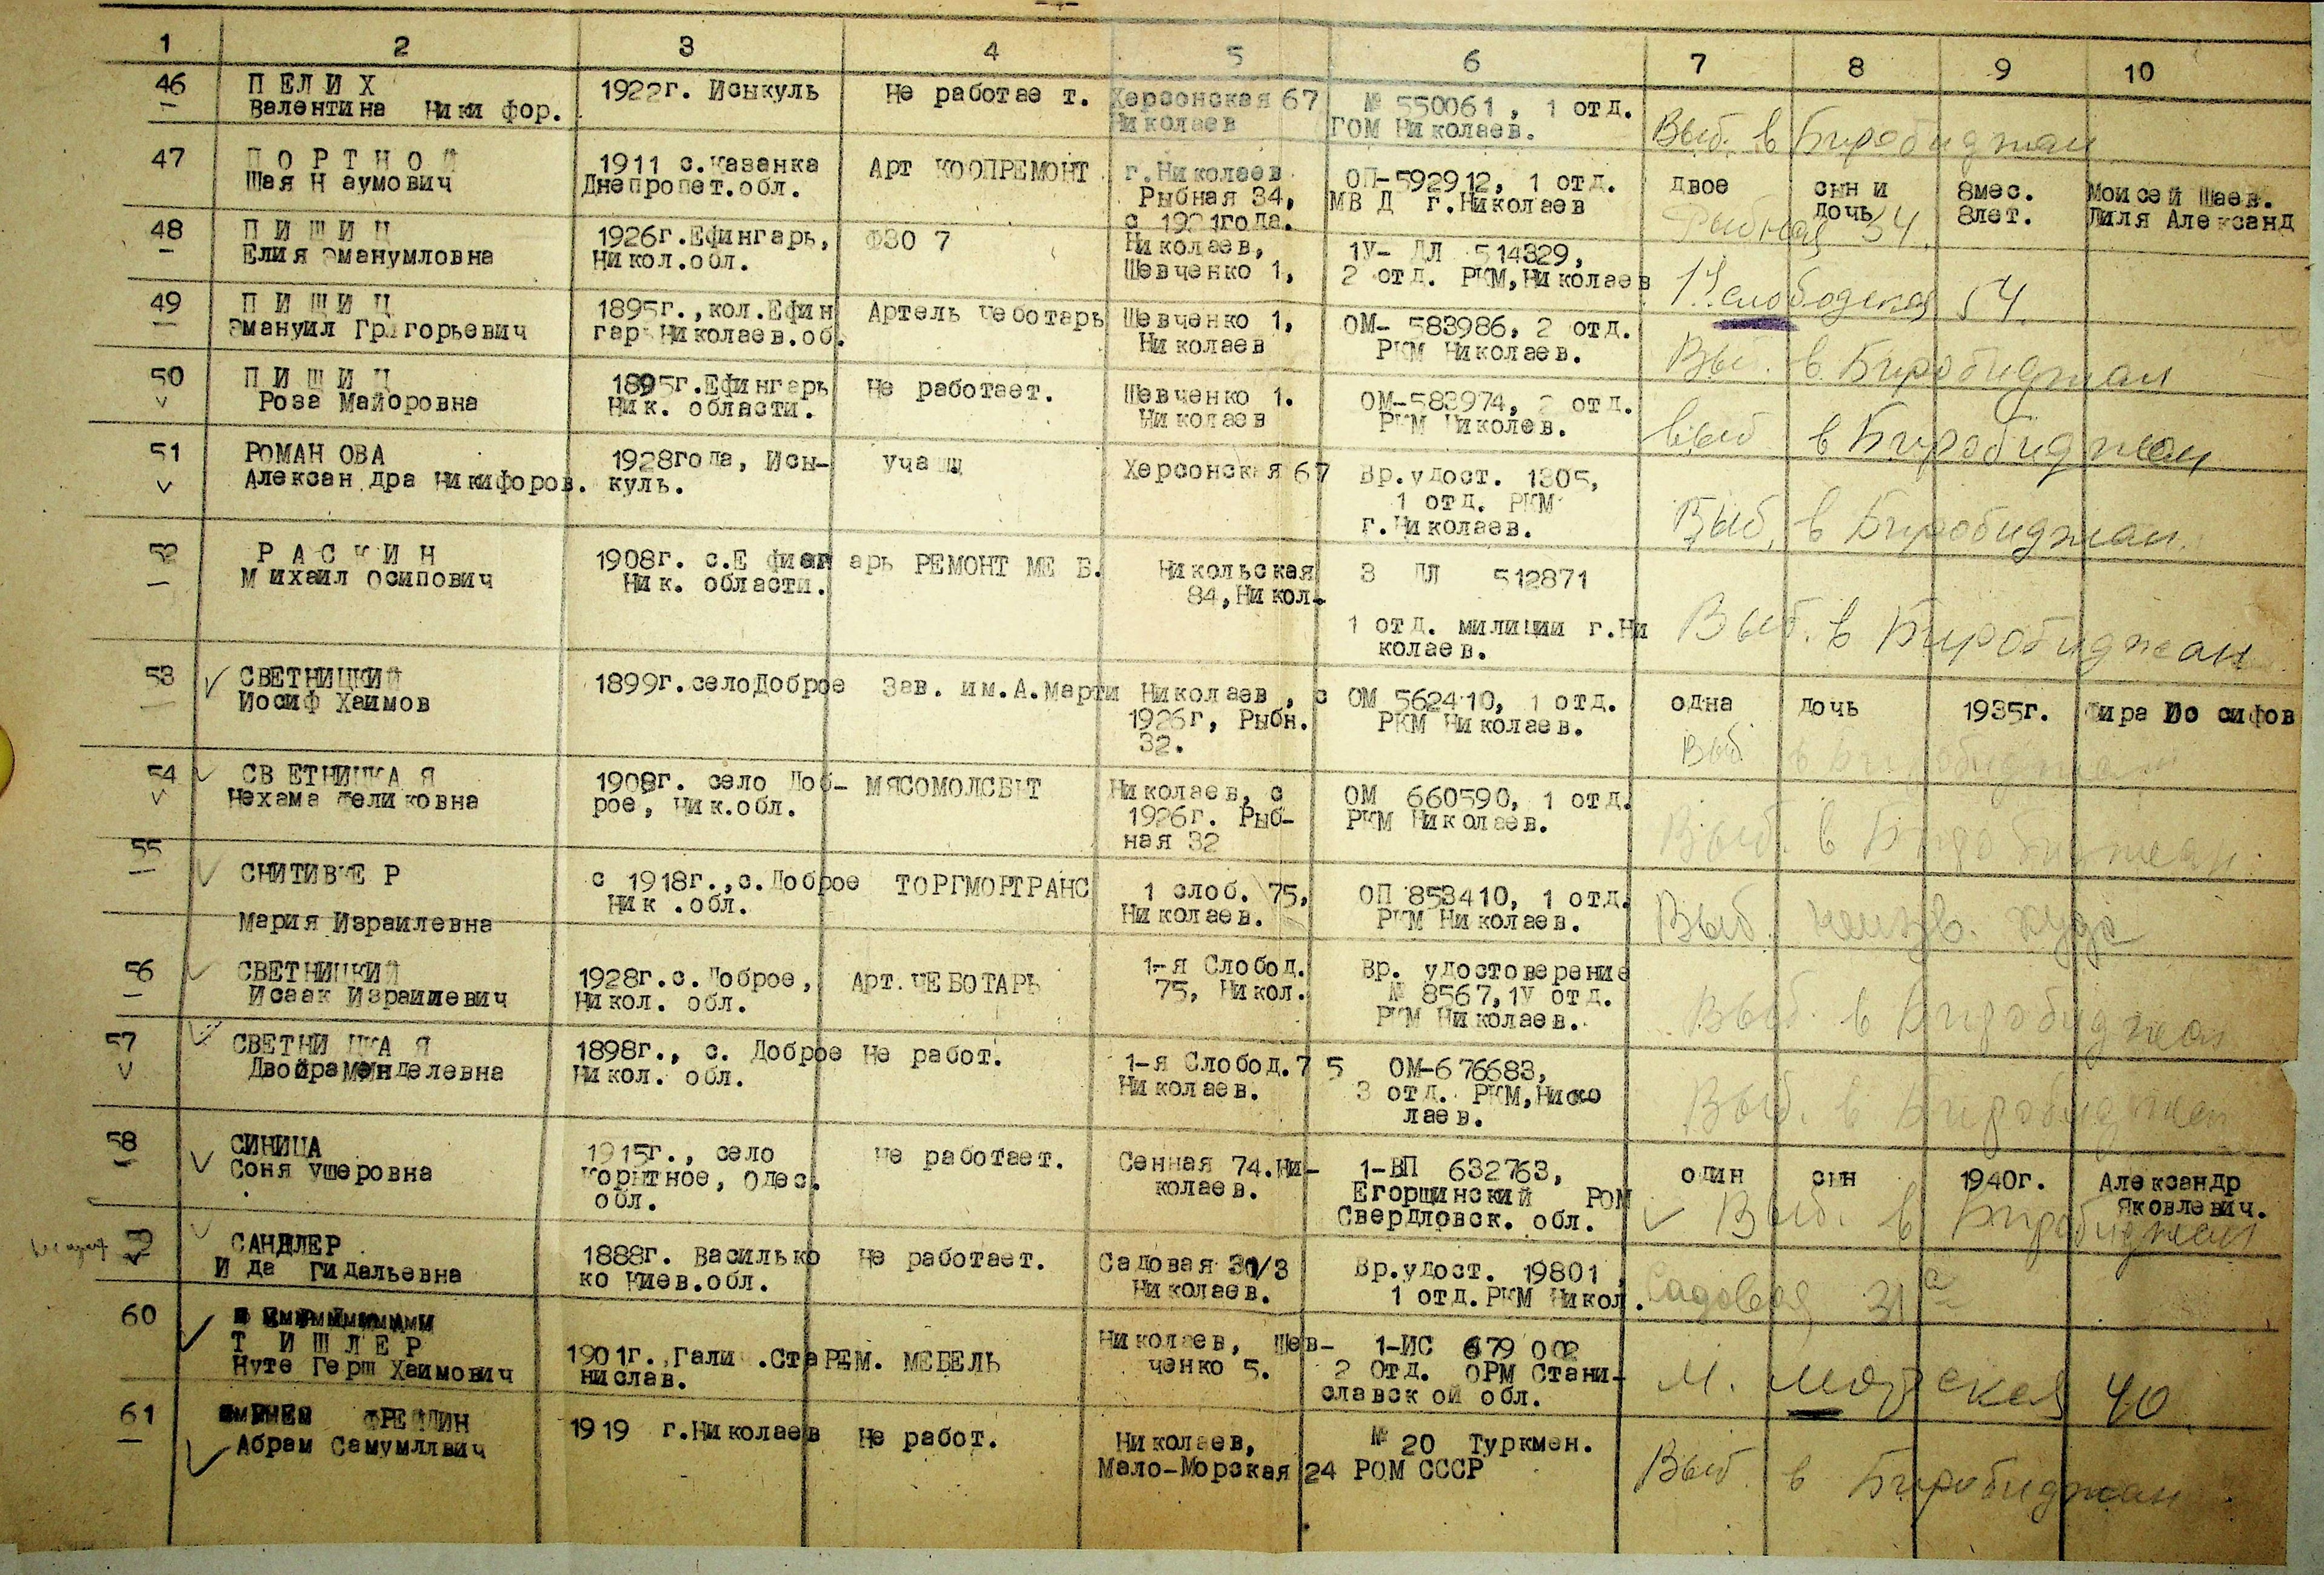 1 2 3 4 5 6 7 8 9 10
46 ПЕЛИХ 1922г. Исыкуль Не работае т. Херсонская 67 № 550061, 1 отд.
Валентина Ники фор. Николаев ГОМ Николаев.
Выб. в Биробиджан
47 ПОРТНОЙ 1911 с.Казанка Арт КООПРЕМОНТ г.Николаев ОП-592912, 1 отд. двое сын и 8мес. Моисей Шаев.
Шая Наумович Днепропет.обл. Рыбная 34, МВД г.Николаев дочь 8лет. Лиля Александ
с 1921года. Рыбная 34.
48 ПИЩИЦ 1926г.Ефингарь, ФЗО 7 Николаев, 1У- ДЛ 514329,
Елия Эманумловна Никол.обл. Шевченко 1, 2 отд. РКМ,Николаев
1я слободская 54.
49 ПИЩИЦ 1895г.,кол.Ефин Артель Чеботарь Шевченко 1, ОМ- 583986, 2 отд.
Эмануил Григорьевич гарь Николаев.об. Николаев РКМ Николаев.
Выб. в Биробиджан
50 ПИЩИЦ 1895г.Ефингарь Не работает. Шевченко 1. ОМ-583974, 2 отд.
Роза Майоровна Ник. области. Николаев РКМ Николев.
Выб в Биробиджан
51 РОМАНОВА 1928года, Исы- учащ Херсонская 67 Вр.удост. 1305,
Александра Никифоров. куль. 1 отд. РКМ
г.Николаев.
Выб. в Биробиджан.
52 РАСКИН 1908г. с.Ефинг арь РЕМОНТ МЕ Б. Никольская 3 ДЛ 512871
Михаил Осипович Ник. области. 84,Никол.
1 отд. милиции г.Ни
колаев.
Выб. в Биробиджан
53 СВЕТНИЦКИЙ 1899г.село Доброе Зав. им.А.Марти Николаев, с ОМ 562410, 1 отд. одна дочь 1935г. Фира Иосифов
Иосиф Хаимов 1926г, Рыбн. РКМ Николаев.
32. Выб в Биробиджан
54 СВЕТНИЦКАЯ 1908г. село Доб- МЯСОМОЛСБЫТ Николаев, с ОМ 660590, 1 отд.
Нехама Феликовна рое, Ник.обл. 1926г. Рыб- РКМ Николаев.
ная 32
Выб. в Биробиджан
55 СНИТИВКЕР с 1918г.,с.Доброе ТОРГМОРТРАНС 1 слоб. 75, ОП 853410, 1 отд.
Ник .обл. Николаев. РКМ Николаев.
Мария Израилевна Выб. неизв. куда
56 СВЕТНИЦКИЙ 1928г.с.Доброе, Арт.ЧЕБОТАРЬ 1-я Слобод. Вр. удостоверение
Исаак Израилевич Никол. обл. 75, Никол. № 8567,1У отд.
РКМ Николаев.
Выб. в Биробиджан
57 СВЕТНИЦКАЯ 1898г., с. Доброе Не работ. 1-я Слобод.7 5 ОМ-676683,
Двойра Менделевна Никол. обл. Николаев. 3 отд. РКМ,Нико
лаев.
Выб. в Биробиджан
58 СИНИЦА 1915г., село Не работает. Сенная 74.Ни- 1-ВП 632763, один сын 1940г. Александр
Соня Ушеровна Корытное, Одес. колаев. Егорщинский РОМ Яковлевич.
обл. Свердловск. обл.
Выб. в Биробиджан
САНДЛЕР 1888г. Василько Не работает. Садовая 31/3 Вр.удост. 19801,
Ида Гидальевна ко Киев.обл. Николаев. 1 отд.РКМ Никол.
Садовая 31 а
60
ТИШЛЕР 1901г.,Галиц.Ста РЕМ. МЕБЕЛЬ Николаев, Шев- 1-ИС 679 002
Нуте Герш Хаимович нислав. ченко 5. 2 Отд. ОРМ Стани-
славской обл.
М. Морская 40
61 ФРЕЙДИН 1919 г.Николаев Не работ. Николаев, № 20 Туркмен.
Абрам Самумллвич Мало-Морская 24 РОМ СССР
Выб в Биробиджан